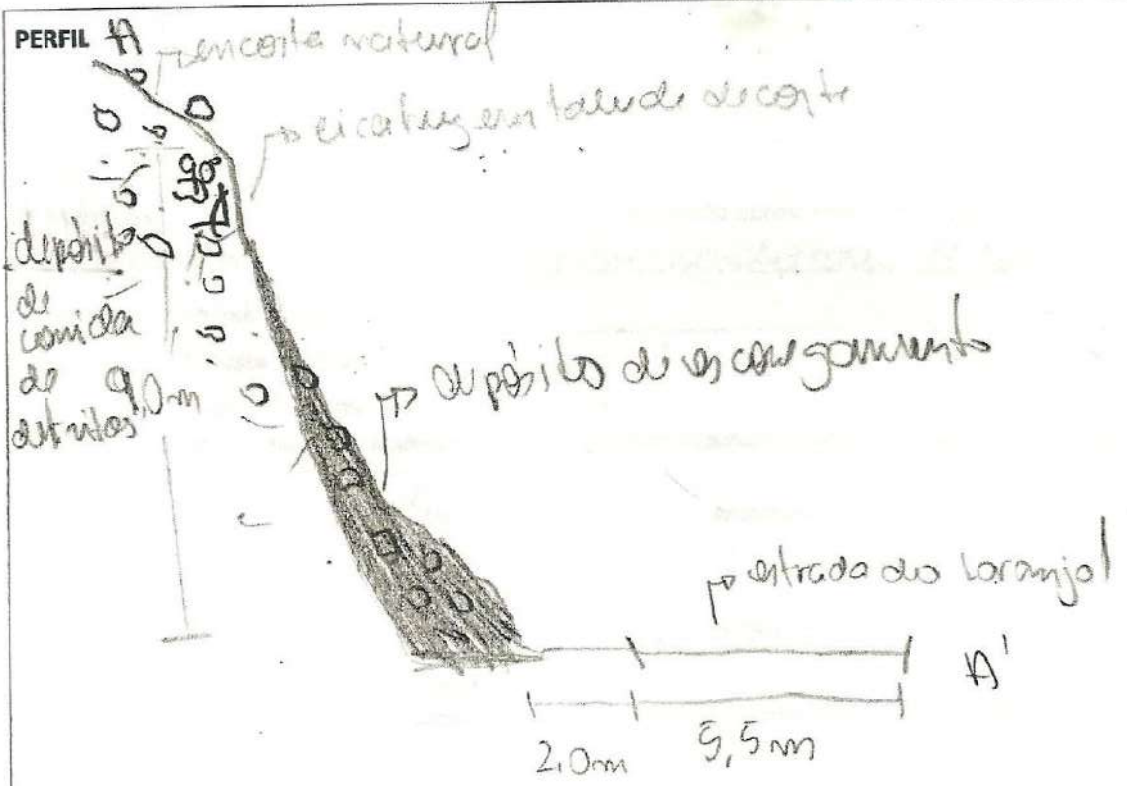 PERFIL A
encosta natural
cicatriz em talude de corte
depósito
de
corrida
de
detritos
9,0m
depósito de escorregamento
estrada do Laranjal
A'
2,0m
5,5m